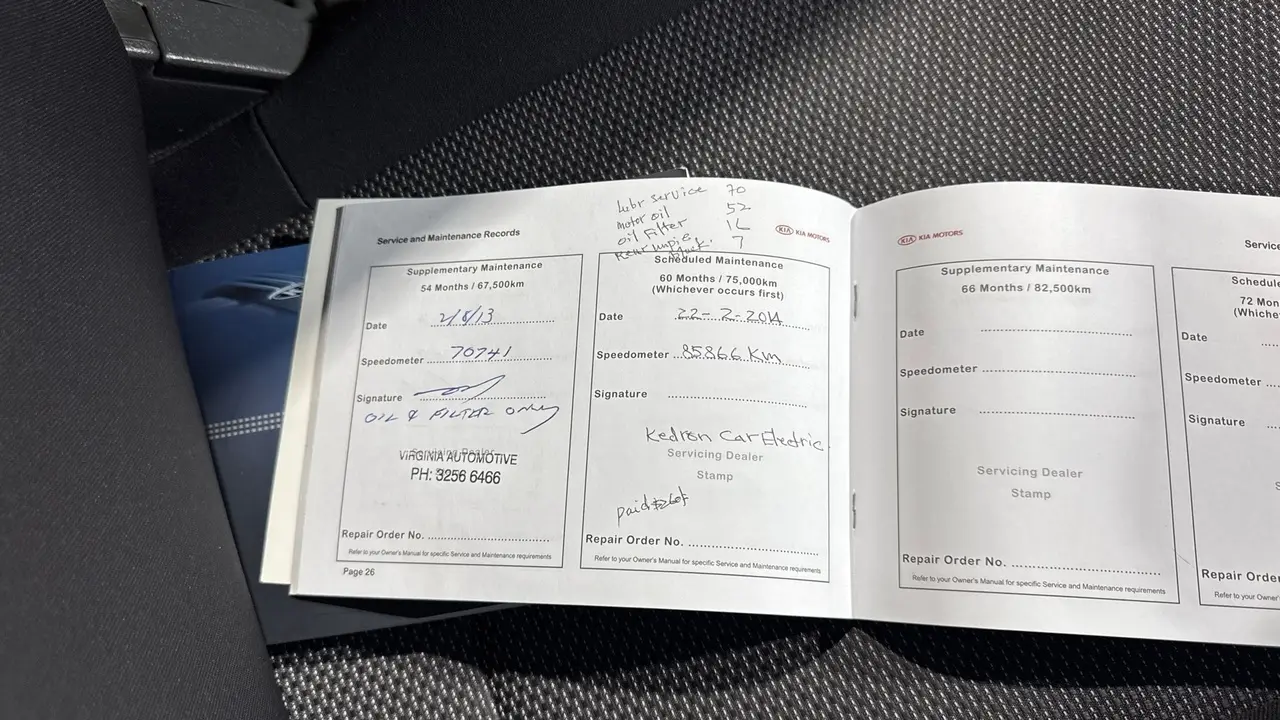 Service and Maintenance Records
lubr service 70
Motor oil 52
oil Filter
Rear 7
KIA KIA MOTORS
Supplementary Maintenance
54 Months / 67,500km
Date 2/8/13
Speedometer 70741
Signature
OIL & FILTER only
VIRGINIA AUTOMOTIVE
PH: 3256 6466
Repair Order No.
Refer to your Owner's Manual for specific Service and Maintenance requirements
Page 26
Scheduled Maintenance
60 Months / 75,000km
(Whichever occurs first)
Date 22-2-2014
Speedometer 85866 Km
Signature
Kedron Car Electric
Servicing Dealer
Stamp
paid
Repair Order No.
Refer to your Owner's Manual for specific Service and Maintenance requirements
KIA KIA MOTORS
Supplementary Maintenance
66 Months / 82,500km
Date
Speedometer
Signature
Servicing Dealer
Stamp
Repair Order No.
Refer to your Owner's Manual for specific Service and Maintenance requirements
Servic
Schedule
72 Mon
(Whiche
Date
Speedometer
Signature
S
Repair Order N
Refer to your Owner's